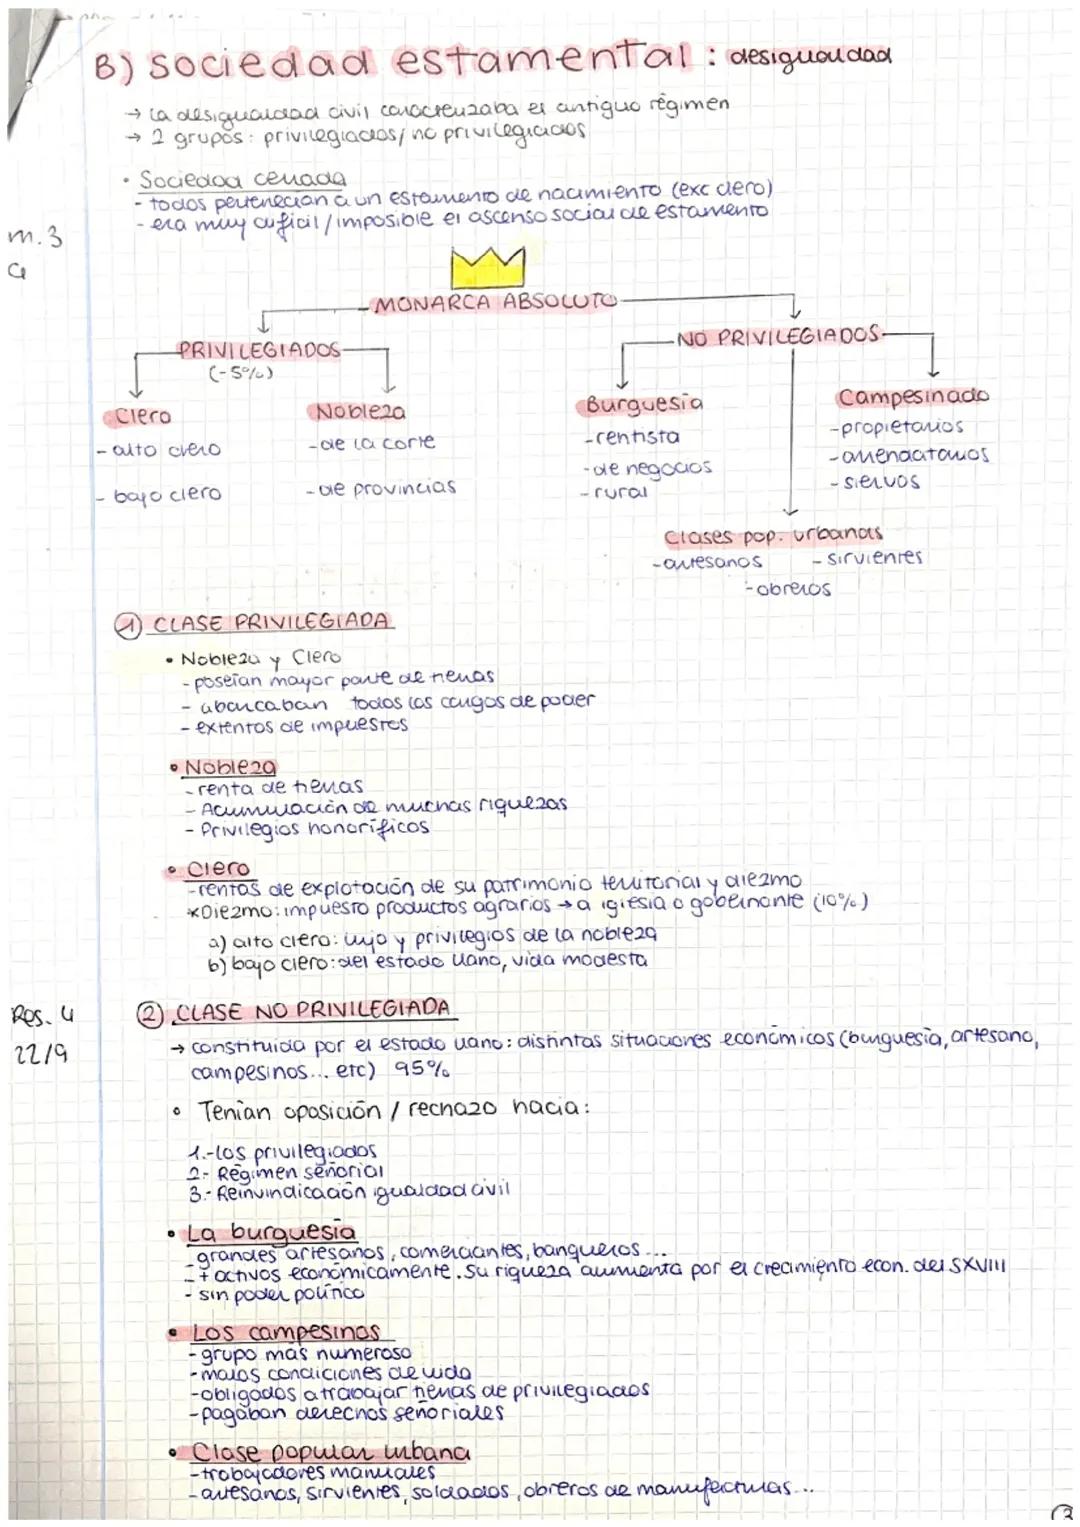 B) sociedad estamental : desigualdad
→ la desigualdad civil caracterizaba el antiguo régimen
→ 2 grupos: privilegiados/ no privilegiados
• Sociedad cerrada
- todos pertenecían a un estamento de nacimiento (exc clero)
- era muy dificil / imposible el ascenso social de estamento
m. 3
MONARCA ABSOLUTO
PRIVILEGIADOS
(-5%)
NO PRIVILEGIADOS
Clero
- alto clero
- bajo clero
Nobleza
- de la corte
- de provincias
Burguesía
- rentista
- de negocios
- rural
Campesinado
- propietarios
- arrendatarios
- siervos
Clases pop. urbanas
- artesanos - sirvientes
- obreros
① CLASE PRIVILEGIADA
• Nobleza y Clero
- poseían mayor parte de tierras
- abarcaban todos los cargos de poder
- extentos de impuestos
• Nobleza
- renta de tierras
- Acumulación de muchas riquezas
- Privilegios honoríficos
• Clero
- rentas de explotación de su patrimonio territorial y diezmo
*Diezmo: impuesto productos agrarios → a iglesia o gobernante (10%)
a) alto clero: lujo y privilegios de la nobleza
b) bajo clero: del estado llano, vida modesta
Res. 4
22/9
② CLASE NO PRIVILEGIADA
→ constituida por el estado llano: distintas situaciones económicos (burguesía, artesano,
campesinos... etc) 95%
• Tenían oposición / rechazo hacia:
1.- los privilegiados
2.- Régimen señorial
3.- Reinvindicación igualdad civil
• La burguesía
- grandes artesanos, comerciantes, banqueros...
- + activos económicamente. Su riqueza aumenta por el crecimiento econ. del SXVIII
- sin poder político
• Los campesinos
- grupo más numeroso
- malas condiciones de vida
- obligados a trabajar tierras de privilegiados
- pagaban derechos señoriales
• Clase popular urbana
- trabajadores manuales
- artesanos, sirvientes, soldados, obreros de manufacturas...
3